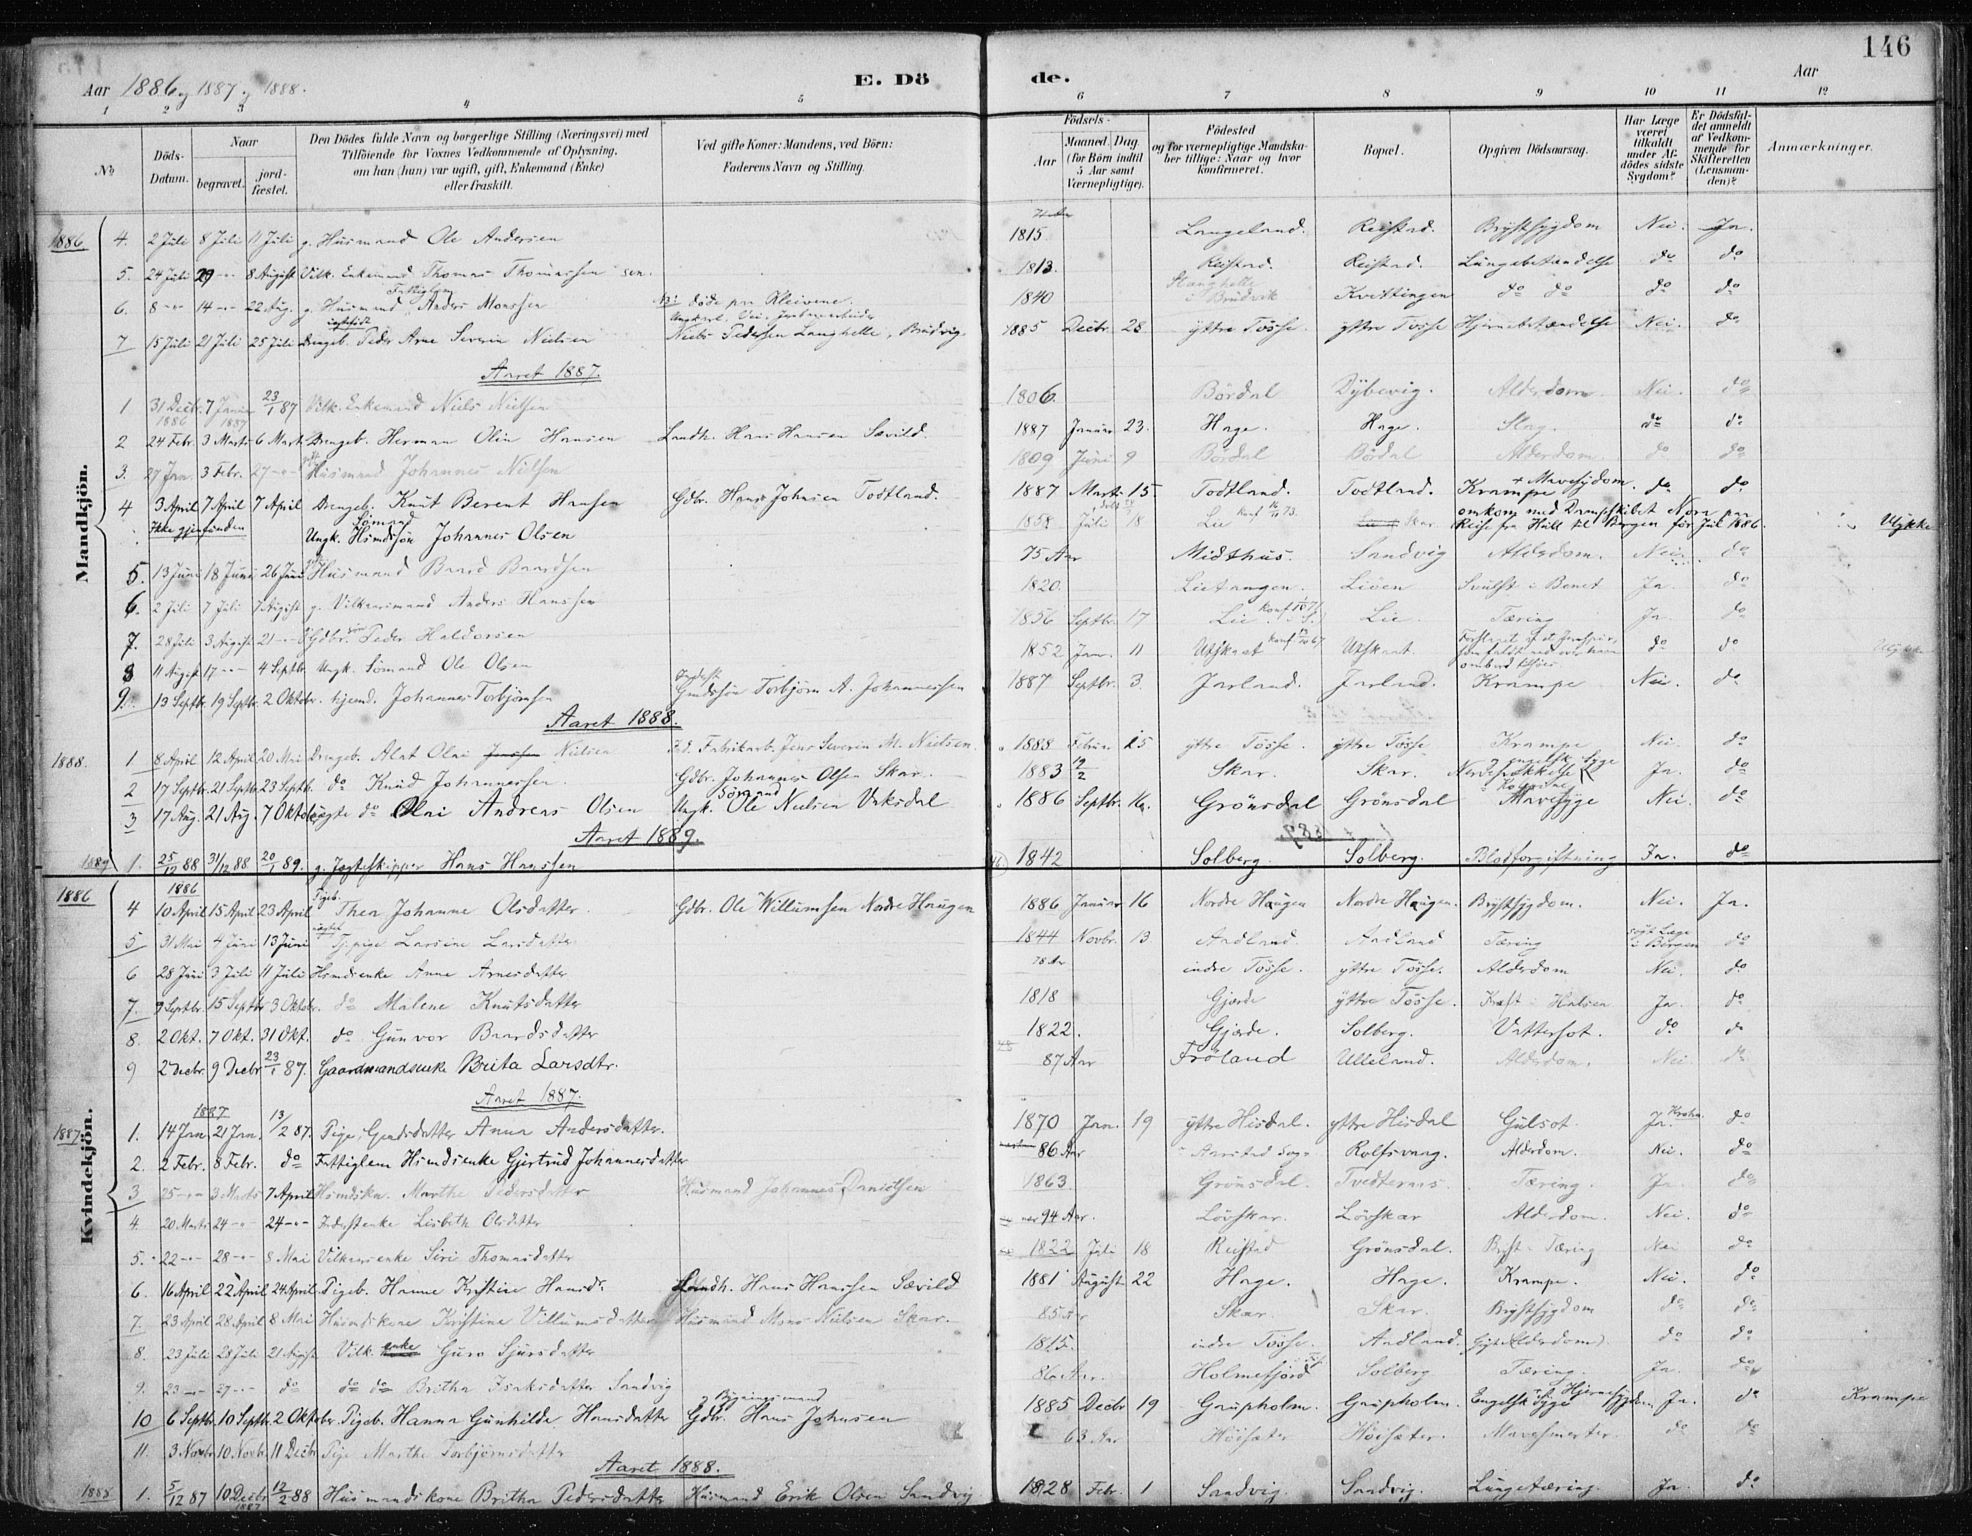 146
Aar 1886 og 1887 og 1888.
E. Dö de.
Aar
1 2 3 4 5 6 7 8 9 10 11 12
No
Döds-Datum.
Naar
begravet.
jord-fæstet.
Den Dödes fulde Navn og borgerlige Stilling (Næringsvei) med Tilföiende for Voxnes Vedkommende af Oplysning, om han (hun) var ugift, gift, Enkemand (Enke) eller fraskilt.
Ved gifte Koner: Mandens, ved Börn: Faderens Navn og Stilling.
Födsels-
Aar
Maaned Dag (for Börn indtil 5 Aar samt Værnepligtige).
Födested og for værnepligtige Mandskaber tillige: Naar og hvor konfirmeret.
Bopæl.
Opgiven Dödsaarsag.
Har Læge været tilkaldt under Afdödes sidste Sygdom?
Er Dödsfaldet anmeldt af Vedkommende for Skifteretten (Lensmanden)?
Anmærkninger.
Mandkjön.
1886 4. 2 Juli 8 Juli 11 Juli g. Husmand Ole Andersen 1815 Langeland. Reistad. Brystsygdom Nei. Ja.
5. 24 Juli 29 -- 8 August Vilk. Enkemand Thomas Thomassen sen. 1813. Reistad. Reistad. Lungebetændelse do do
6. 8 -- 14 -- 22 Aug. g. Husmand Fattiglem Anders Monsen döde paa Kleivene. 1840 Stanghelle i Brudvik Kvittingen do do do do
7 15 Juli 21 Juli 25 Juli Drengeb. Peder Arne Severin Nielsen Niels Pedersen Langhelle, Brudvig 1885 Decbr. 28. ytre Tösse. ytre Tösse Hjernebetændelse Nei. do
Aaret 1887.
1 31 Decbr. 1886 7 Januar 1887 23/1 87 Vilk. Enkemand Niels Nielsen 1806. Bördal Dybevig. Alderdom Nei. do
2 24 Febr. 3 Marts 6 Marts Drengeb. Herman Olin Hansen Landh. Hans Hansen Sævild. 1887 Januar 23. Hage. Hage. Slag. do do
3. 27 Jan. 3 Febr. 27 -- Husmand Johannes Nilsen 1809 Juni 9 Bördal Bördal Alderdom. do do
4 3 April 7 April 7 April Drengeb. Knut Berent Hansen Gdbr. Hans Johnsen Todtland. 1887 Marts 15. Todtland. Todtland. Krampe + Mavesygdom. do do
Ikke gjenfunden Ungk. Sömand Husmdssön Johannes Olsen Juli 18 Lie Skar. omkom med Dampskibet Nora paa Reise fra Hull til Bergen för Jul 1886. Ulykke
5. 13 Juni 18 Juni 26 Juni Husmand Baard Baardsen 75 Aar Midthus. Sandvig Alderdom. Nei. do
6. 2 Juli 7 Juli 7 August g. Vilkaarsmand Anders Hanssen 1820. Lietangen. Liöen Svulst i Benet Ja. do
7. 28 Juli 3 August 21 -- Gdbr. sön Peder Haldorsen 1856 Septbr. 17 Lie. Lie. Tæring Ja. do
8 11 August 17 -- 4 Septbr. Ungk. Sömand Ole Olsen 1852 Jan. 11 Utskaat Utskaat. do do Ulykke
9. 13 Septbr. 19 Septbr. 2 Oktobr. hjemd. Johannes Torbjörnsen Gmdssön Torbjörn A. Johannessen 1887 Septbr. 3. Jarland. Jarland. Krampe Nei. do
Aaret 1888.
1888. 1 8 April 12 April 20 Mai Drengeb. Alat Olai Jenssen Nielsen Fabrikarb. Jens Severin M. Nielsen. 1888 Februar 25 ytre Tösse. ytre Tösse Krampe Nei. do
2 17 Septbr. 21 Septbr. 23 Septb. do Knud Johannessen Gdbr. Johannes Olsen Skar. 1883 12/2 Skar. Skar. engelsk Syge Ja. do
3 17 Aug. 21 Aug. 7 Oktober uægte do Olai Andreas Olsen Ungk. Sömand Ole Nielsen Vaksdal 1886 Septbr. 16. Grönsdal Grönsdal Mavesyge Nei. do
Aaret 1889.
1889 1. 25/12 88 31/12 88 20/1 89. g. Jagteskipper Hans Hanssen 1842 Solberg. Solberg. Blodforgiftning Ja. do
Kvindekjön.
1886
1886 4 10 April 15 April 23 April Pigeb. Thea Johanne Olsdatter Gdbr. Ole Willumsen Nordre Haugen 1886 Januar 16 Nordre Haugen Nordre Haugen. Brystsygdom. Nei. Ja.
5. 31 Mai 4 Juni 13 Juni Tj.pige Larsine Larsdatter 1844 Novbr. 13 Aadland. Aadland Tæring i Bergen do
6 28 Juni 3 Juli 11 Juli Hsmdsenke Anne Arnesdatter 78 Aar indre Tösse. ytre Tösse. Alderdom Nei. do
7. 9 Septbr. 15 Septbr. 3 Oktobr. do Malene Knutsdatter 1818 Gjerde ytre Tösse. Kræft i Halsen Ja. do
8. 2 Okt. 7 Okt. 31 Okt. do Gunvor Baardsdatter 1822. Gjerde. Solberg. Vattersot. do do
9 2 Decbr. 9 Decbr. 23/1 87. Gaardmandsenke Brita Larsdtr. 87 Aar Fröland Ulleland. Alderdom. Nei do
Aaret 1887.
1887
1887 1. 14 Jan. 21 Jan. 13/2 87. Pige, Gmdsdatter Anna Andersdatter. 1870 Jan. 19 ytre Hisdal. ytre Hisdal Gulsot. Ja. Krohn. do
2. 2 Febr. 8 Febr. do Fattiglem Hsmdsenke Gjertrud Johannesdatter 86 Aar Aarstad Sogn Rolfsvaag. Alderdom. Nei. do
3 25 -- 3 Marts 7 April Hsmdskn. Marthe Pedersdatter Husmand Johannes Danielsen 1863. Grönsdal. Tvedternes. Tæring. Ja. do
4. 20 Marts 24 -- 24 -- Inderstenke Lisbeth Olsdatter 94 Aar. Lövskar. Lövskar Alderdom. Nei. do
5. 22 -- 28 -- 8 Mai Vilkaarsenke Siri Thomasdatter 1822 Juli 18 Reistad Grönsdal. Bryst-Tæring Nei do
6. 16 April 22 April 24 April Pigeb. Hanne Kristine Hansdr. Landh. Hans Hanssen Sævild 1881 August 22 Hage. Hage. Krampe. Nei. do
7. 23 April 28 April 8 Mai Husmdskone Kristine Villumsdatter Husmand Mons Nielsen Skar. 85 Aar Skar. Skar. Brystsygdom do do
8. 23 Juli 28 Juli 21 August Vilk. enke Guro Sjursdatter 1815. indre Tösse. Aadland. Gigt (Alderdom) do do
9. 23 -- 27 -- do do do Britha Isaksdatter Sandvig 86 Aar. Holmefjord Solberg Tæring. Ja. do
10 6 Septbr. 10 Septbr. 2 Oktober. Pigeb. Hanna Gunhilde Hansdatter Gdbr. og Bygningsmand Hans Johnsen 1885 Decbr 19 Graupholm. Graupholm. Engelsk Syge Hjernesygdom Ja. do Krampe
11. 3 Novbr. 10 Novbr. 11 Decbr. Pige Marthe Torbjörnsdatter 63 Aar Höisæter Höisæter. Mavesmerter. do do
Aaret 1888.
1888 1. 5/12 87 10 Decbr. 1887 12/2 88 Husmandskone Britha Pedersdatter Husmand Erik Olsen Sandvig 1828 Febr. 1 Sandvig. Sandvig. Lungetæring. Ja. do